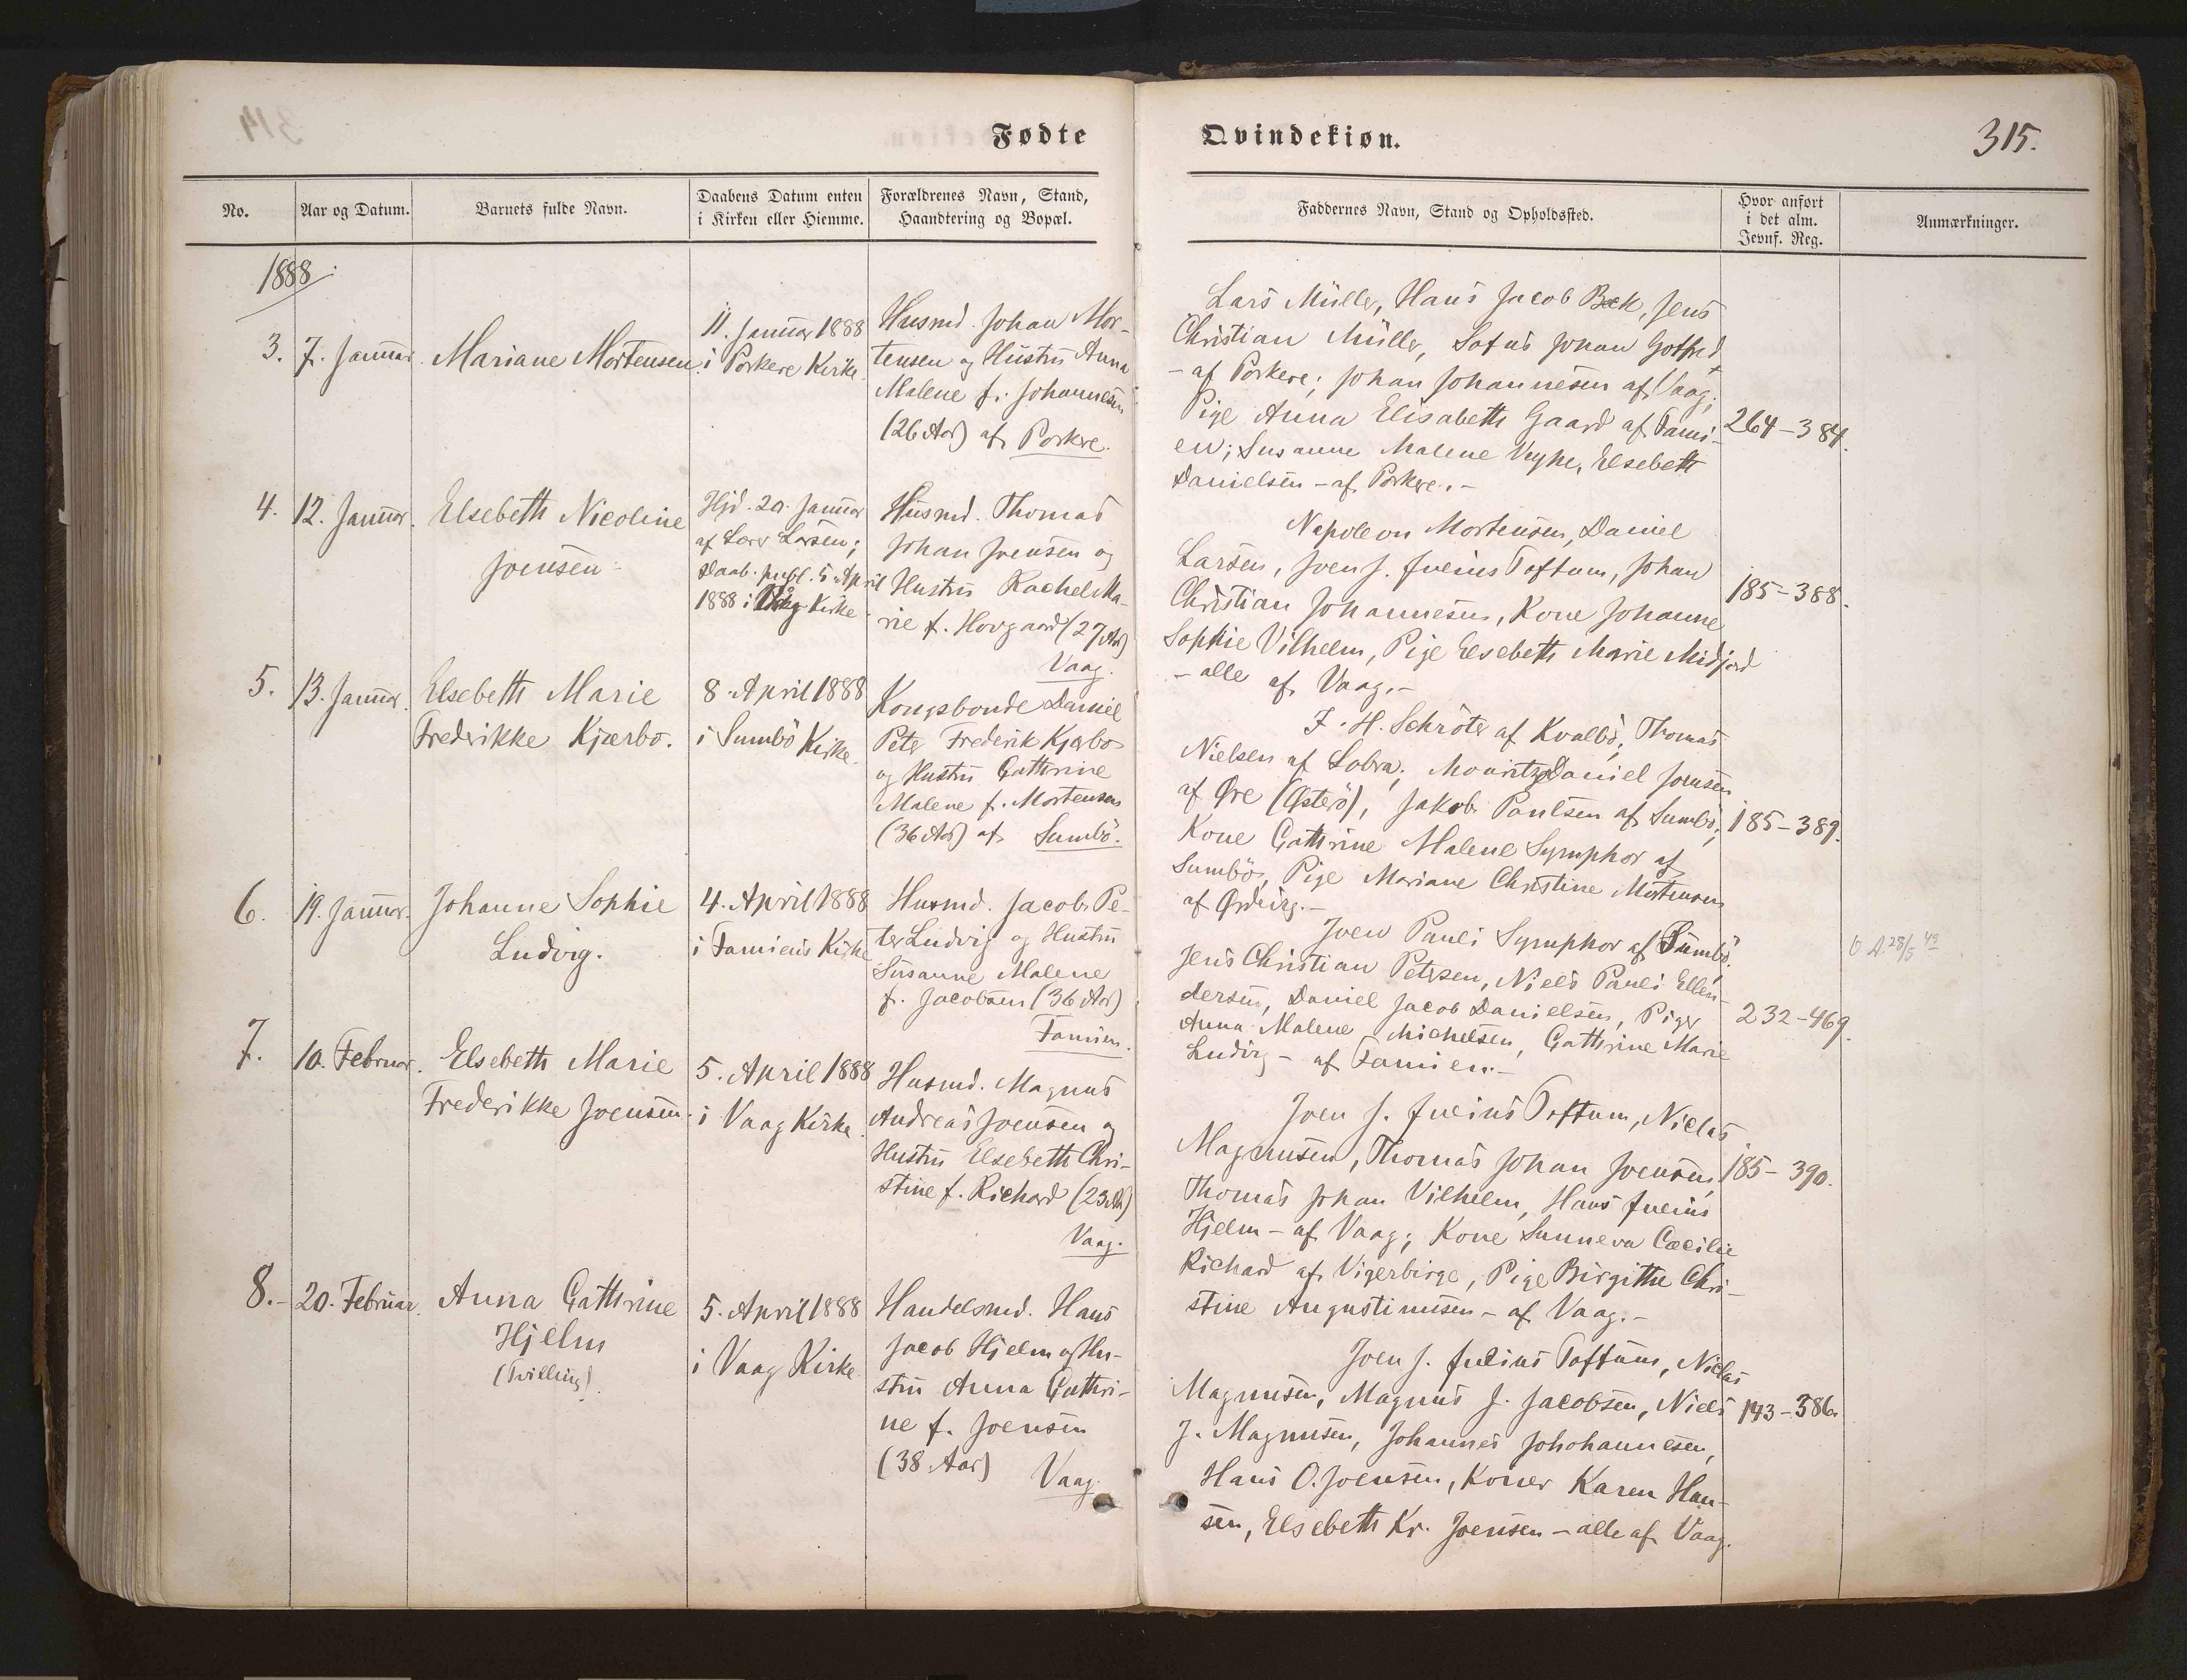 Fødte
No.
Aar og Datum.
Barnets fulde Navn.
Daabens Datum enten
i Kirken eller Hiemme.
Forældrenes Navn, Stand,
Haandtering og Bopæl.
1888.
3.
7. Januar.
Mariane Mortensen.
11. Januar 1888
i Porkere Kirke.
Husmd. Johan Mor-
tensen og Hustru Anna
Malene f. Johannesen
(26 Aar) af Porkere.
4.
12. Januar.
Elsebeth Nicoline
Joensen.
Hjd. 20. Januar
af Lærer Larsen;
Daab. publ. 5 April
1888 i Vaag Kirke.
Husmd. Thomas
Johan Joensen og
Hustru Rachel Ma-
rie f. Hovgaard (27 Aar)
Vaag.
5.
13. Januar.
Elsebeth Marie
Frederikke Kjærbo.
8. April 1888
i Sumbö Kirke.
Kongsbonde Daniel
Peter Frederik Kjærbo
og Hustru Cathrine
Malene f. Mortensen
(36 Aar) af Sumbö.
6.
19. Januar.
Johanne Sophie
Ludvig.
4. April 1888
i Famiens Kirke
Husmd. Jacob Pe-
ter Ludvig og Hustru
Susanne Malene
f. Jacobsen (36 Aar)
Famien.
7.
10. Februar.
Elsebeth Marie
Frederikke Joensen.
5. April 1888
i Vaag Kirke.
Husmd. Magnus
Andreas Joensen og
Hustru Elsebeth Chri-
stine f. Richard (23 Aar)
Vaag.
8.-
20. Februar.
Anna Cathrine
Hjelm
(Tvilling).
5. April 1888
i Vaag Kirke.
Handelsmd. Hans
Jacob Hjelm og Hu-
stru Anna Cathri-
ne f. Joensen
(38 Aar)
Vaag.
Qvindekiøn.
315.
Faddernes Navn, Stand og Opholdssted.
Hvor anført
i det alm.
Jevnf. Reg.
Anmærkninger.
Lars Müller, Hans Jacob Bæk, Jens
Christian Müller, Sofus Johan Gotfred
- af Porkere; Johan Johannesen af Vaag;
Pige Anna Elisabeth Gaard af Fami-
en; Susanne Malene Vyhe, Elsebeth
Danielsen - af Porkere.-
264-384.
Napoleon Mortensen, Daniel
Larsen, Joen J. Julius Toftum, Johan
Christian Johannesen, Kone Johanne
Sophie Vilhelm, Pige Elsebeth Marie Midjord
- alle af Vaag.-
185-388.
J. H. Schröter af Kvalbö; Thomas
Nielsen af Lobra; Mouritz Daniel Joensen
af Øre (Østerö), Jakob Paulsen af Sumbö;
Kone Cathrine Malene Symphor af
Sumbö, Pige Mariane Christine Mortensen
af Ørdevig.-
185-389.
Joen Pauli Symphor af Sumbö;
Jens Christian Petersen, Niels Pauli Ellen-
dersen, Daniel Jacob Danielsen, Piger
Anna Malene Michelsen, Cathrine Marie
Ludvig - af Famien.-
232-469.
28/5 49
Joen J. Julius Toftum, Niclas
Magnusen, Thomas Johan Joensen,
Thomas Johan Vilhelm, Hans Julius
Hjelm - af Vaag; Kone Sunneva Cæcilie
Richard af Vigerbirge, Pige Birgithe Chri-
stine Augustinusen - af Vaag.-
185-390.
Joen J. Julius Toftum, Niclas
Magnusen, Magnus J. Jacobsen, Niels
J. Magnusen, Johannes Johohannesen,
Hans O. Joensen, Koner Karen Han-
sen, Elsebeth Kr. Joensen - alle af Vaag.
143-386.